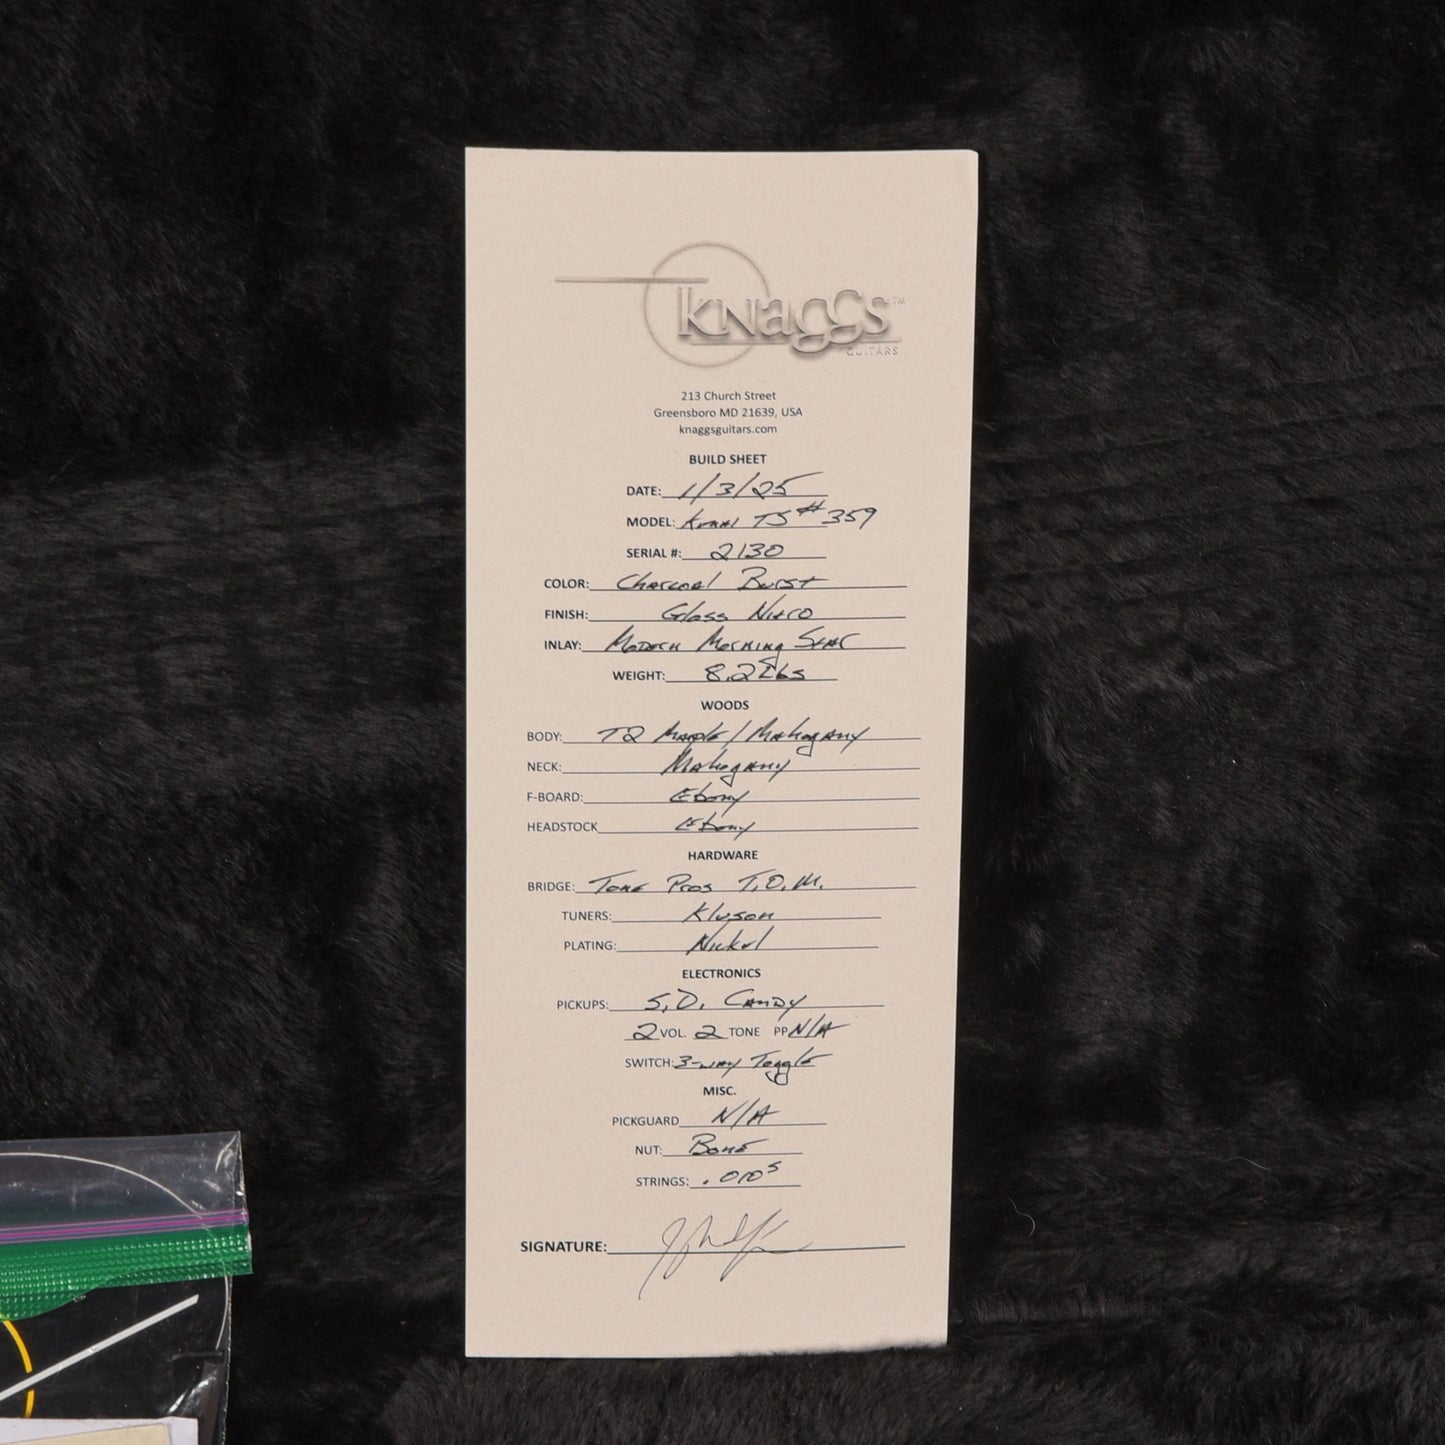 Knaggs™
GUITARS
213 Church Street
Greensboro MD 21639, USA
knaggsguitars.com
BUILD SHEET
DATE: 1/3/25
MODEL: TS #359
SERIAL #: 2130
COLOR: Charcoal Burst
FINISH: Gloss Nitro
INLAY: Modern Morning Star
WEIGHT: 8.2 Lbs
WOODS
BODY: T2 Maple / Mahogany
NECK: Mahogany
F-BOARD: Ebony
HEADSTOCK Ebony
HARDWARE
BRIDGE: Tone Pros T.O.M.
TUNERS: Kluson
PLATING: Nickel
ELECTRONICS
PICKUPS: S.D. Candy
2 VOL. 2 TONE PP N/A
SWITCH: 3-way Toggle
MISC.
PICKGUARD N/A
NUT: Bone
STRINGS: .010s
SIGNATURE: